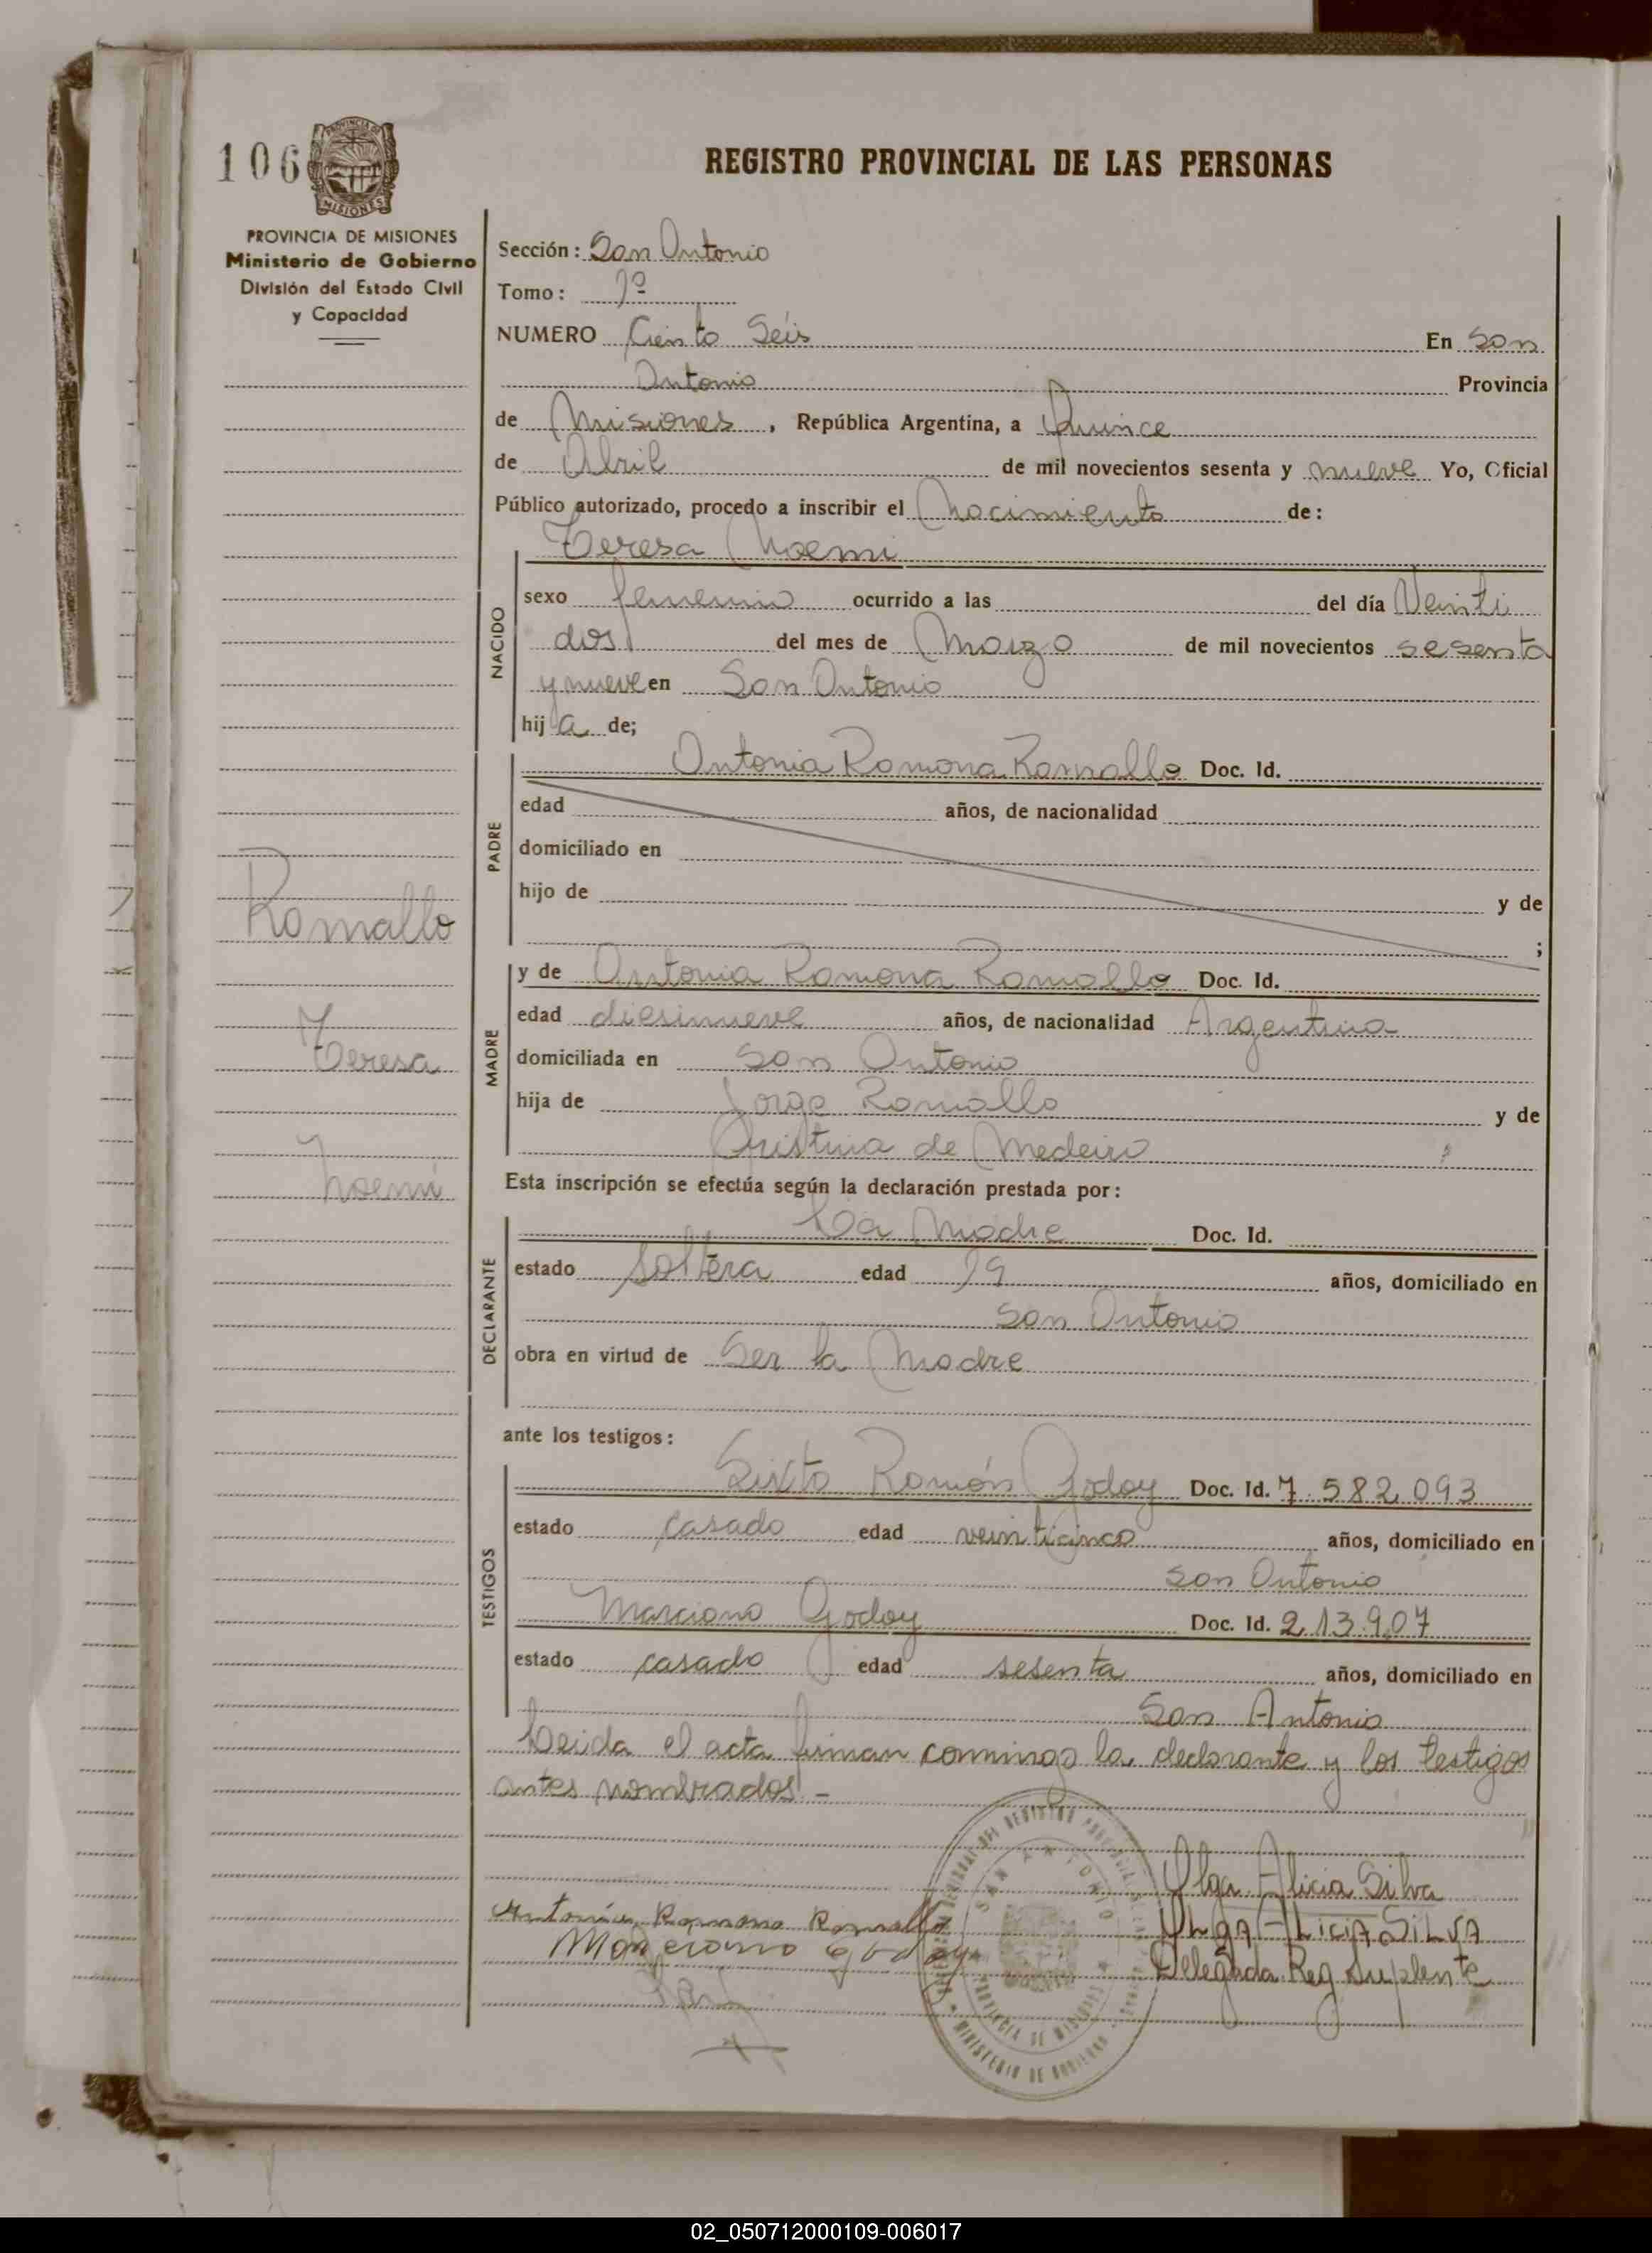 106
PROVINCIA DE
MISIONES
REGISTRO PROVINCIAL DE LAS PERSONAS
PROVINCIA DE MISIONES
Ministerio de Gobierno
División del Estado Civil
y Capacidad
Sección: San Antonio
Tomo: 1º
NUMERO Ciento Seis En San
Antonio Provincia
de Misiones, República Argentina, a Quince
de Abril de mil novecientos sesenta y nueve Yo, Oficial
Público autorizado, procedo a inscribir el Nacimiento de:
Teresa Noemi
NACIDO
sexo femenino ocurrido a las del día Veinti
dos del mes de Marzo de mil novecientos sesenta
y nueve en San Antonio
hija de;
PADRE
Antonia Ramona Ramallo Doc. Id.
edad años, de nacionalidad
domiciliado en
hijo de y de
;
Ramallo
Teresa
Noemi
MADRE
y de Antonia Ramona Ramallo Doc. Id.
edad diesinueve años, de nacionalidad Argentina
domiciliada en San Antonio
hija de Jorge Ramallo y de
Cristina de Medeiro
Esta inscripción se efectúa según la declaración prestada por:
DECLARANTE
La Madre Doc. Id.
estado Soltera edad 19 años, domiciliado en
San Antonio
obra en virtud de Ser la Madre
ante los testigos:
TESTIGOS
Sixto Ramón Godoy Doc. Id. 7.582.093
estado casado edad veinticinco años, domiciliado en
San Antonio
Marciano Godoy Doc. Id. 213.907
estado casado edad sesenta años, domiciliado en
San Antonio
Leida el acta firman conmingo la declarante y los testigos
antes nombrados. -
Olga Alicia Silva
Antonia Ramona Ramallo
OLGA ALICIA SILVA
Delegada Reg Suplente
SAN ANTONIO
PROVINCIA DE MISIONES
MINISTERIO DE GOBIERNO
02_050712000109-006017